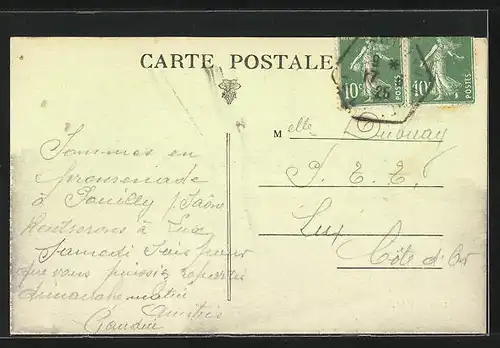 CARTE POSTALE
10c POSTES
10c POSTES
9 *
17 6
25
Melle Dubuay
P. E. E.
Lux
Côte d'Or
Sommes en
promenade
à Pouilly / Saône
Rentrerons à Lux
Samedi soir pour
que vous puissiez repartir
dimanche matin
Amitiés
Gaudin